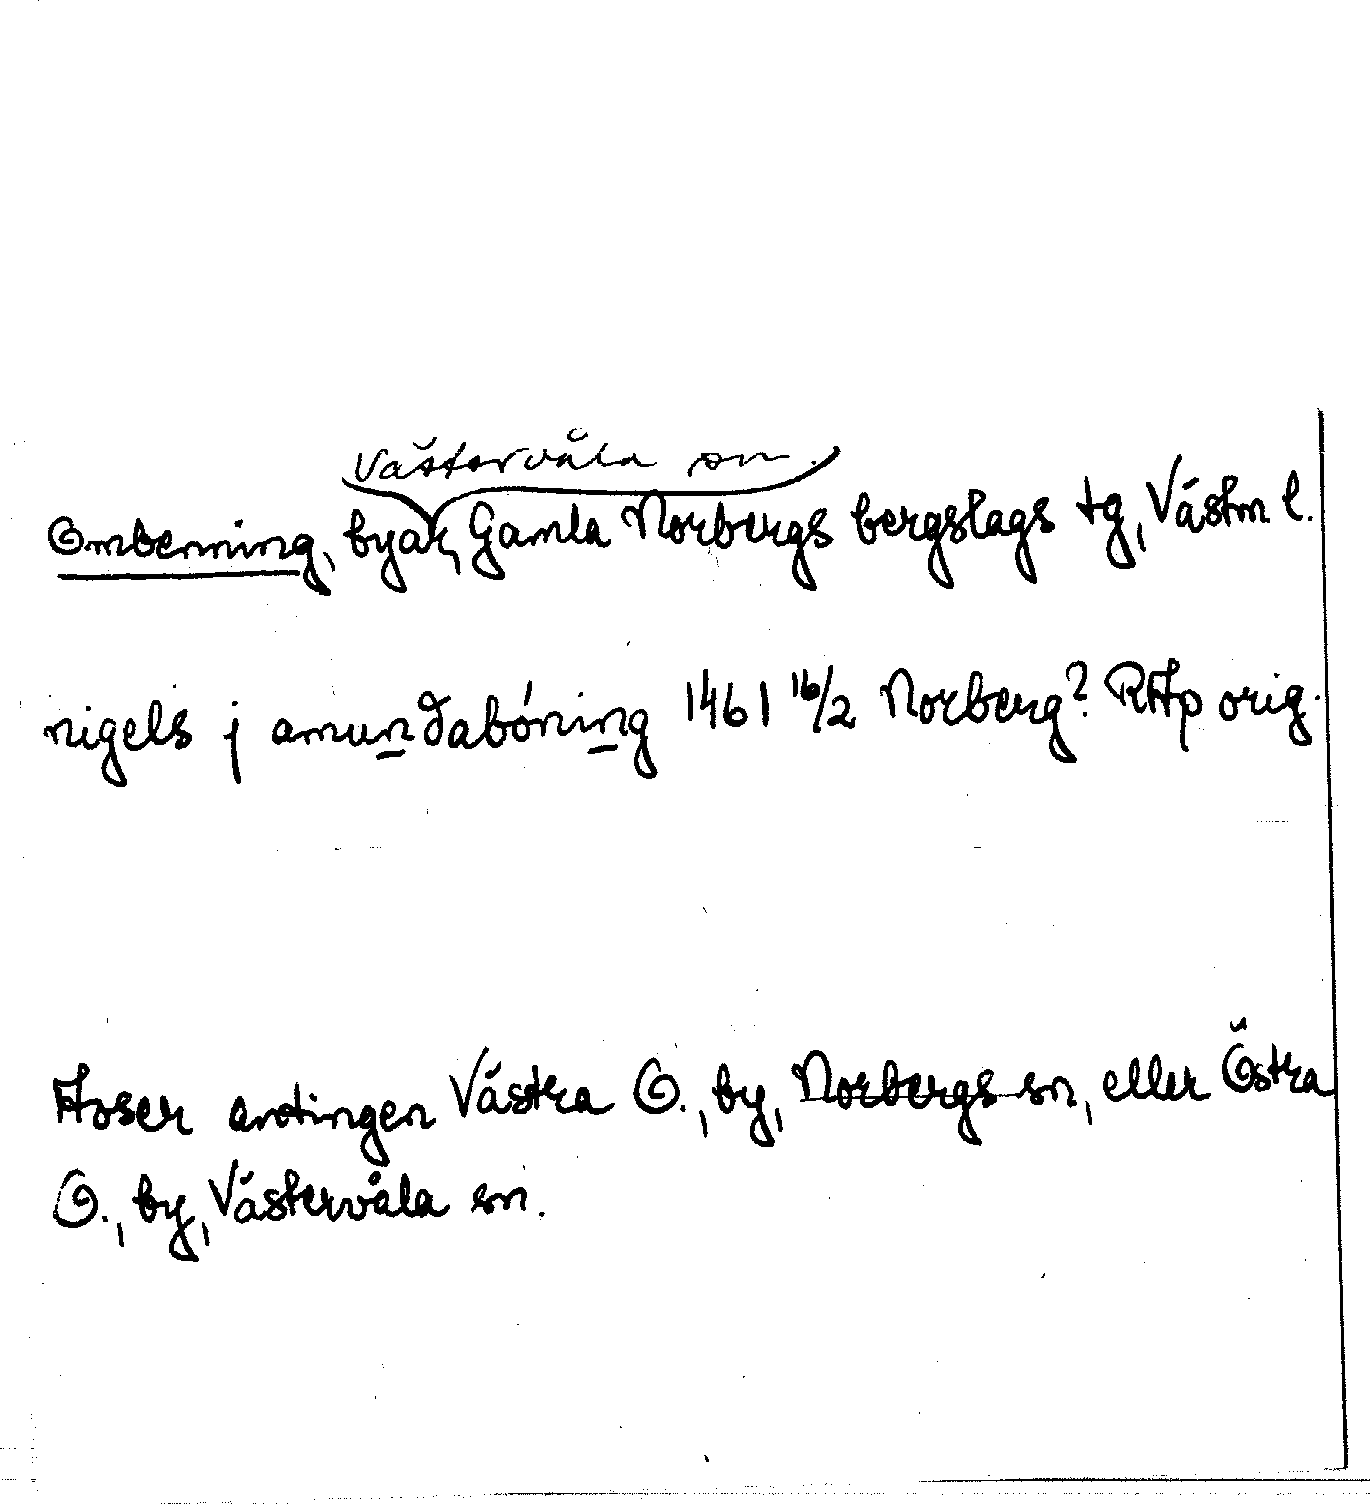 Västervåla sn.
Ombenning, byar, Gamla Norbergs bergslags tg, Västm l.
nigels j amundabóning 1461 16/2 Norberg? RAp orig.
Avser antingen Västra O., by, Norbergs sn, eller Östra
O., by, Västervåla sn.